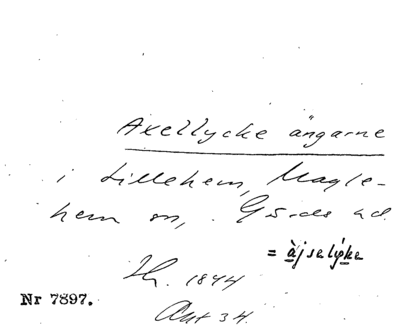 Axellycke ängarne
i Lillehem, Magle-
hem sn, Gärds hd.
= àjselỳke
1844
Nr 7897.
Akt 34.